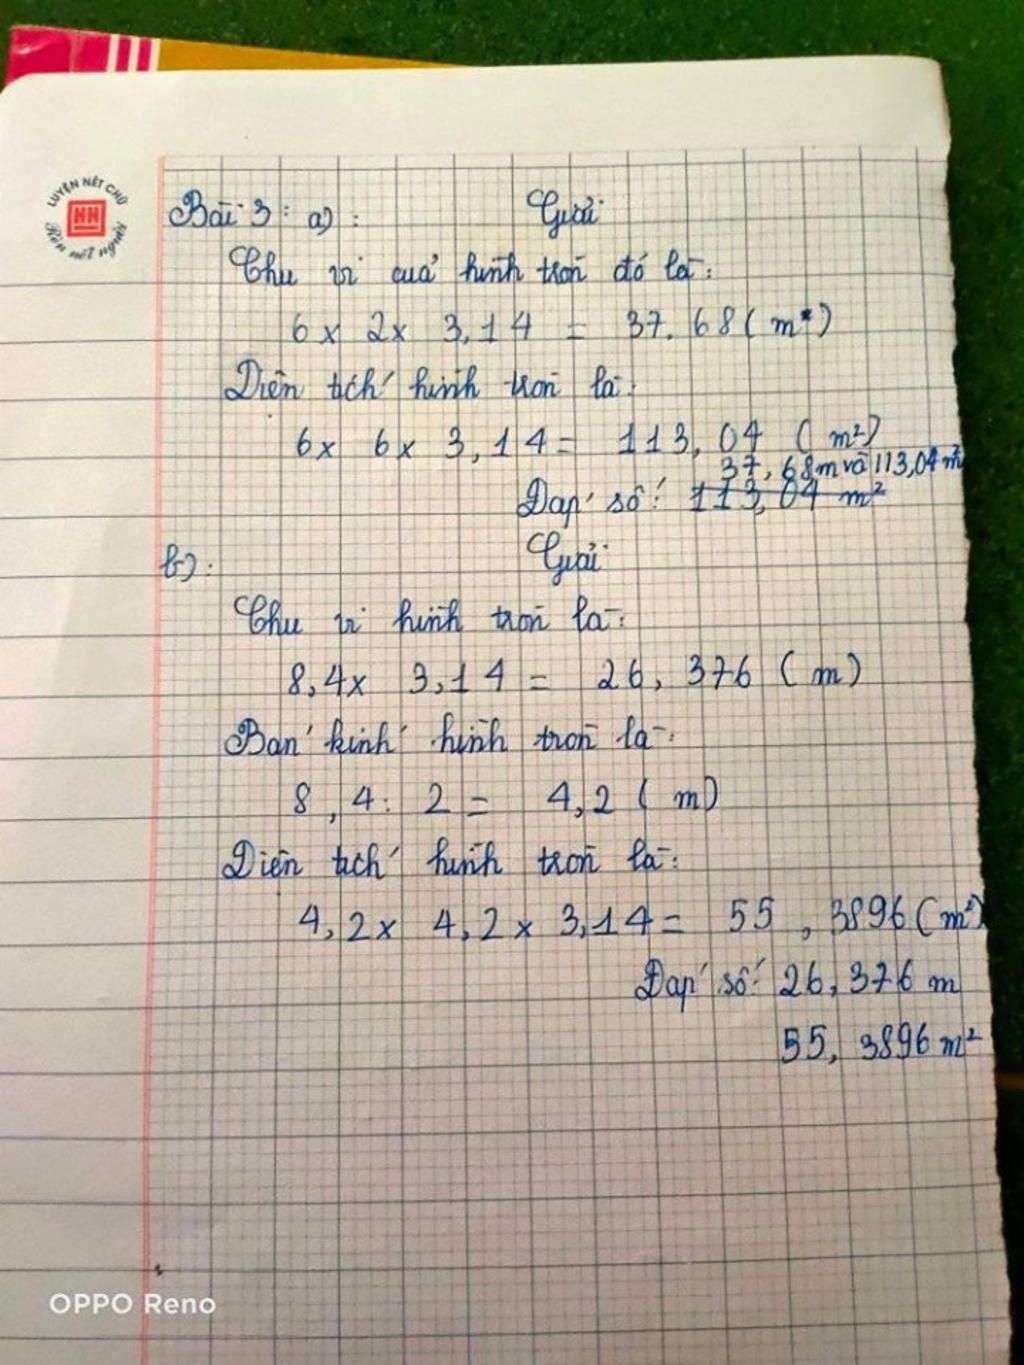 LUYỆN NÉT CHỮ
HH
Rèn nết người
Bài 3: a): Giải
Chu vi củả hình tròn đó là:
6 x 2 x 3,14 = 37.68 (m)
Diện tích hình tròn là:
6 x 6 x 3,14 = 113,04 (m²)
37,68m và 113,04 m²
Đáp số: 113,04 m²
b): Giải
Chu vi hình tròn là:
8,4 x 3,14 = 26,376 (m)
Bán kính hình tròn là:
8,4 : 2 = 4,2 (m)
Diện tích hình tròn là:
4,2 x 4,2 x 3,14 = 55,3896 (m²)
Đáp số: 26,376 m
55,3896 m²
OPPO Reno